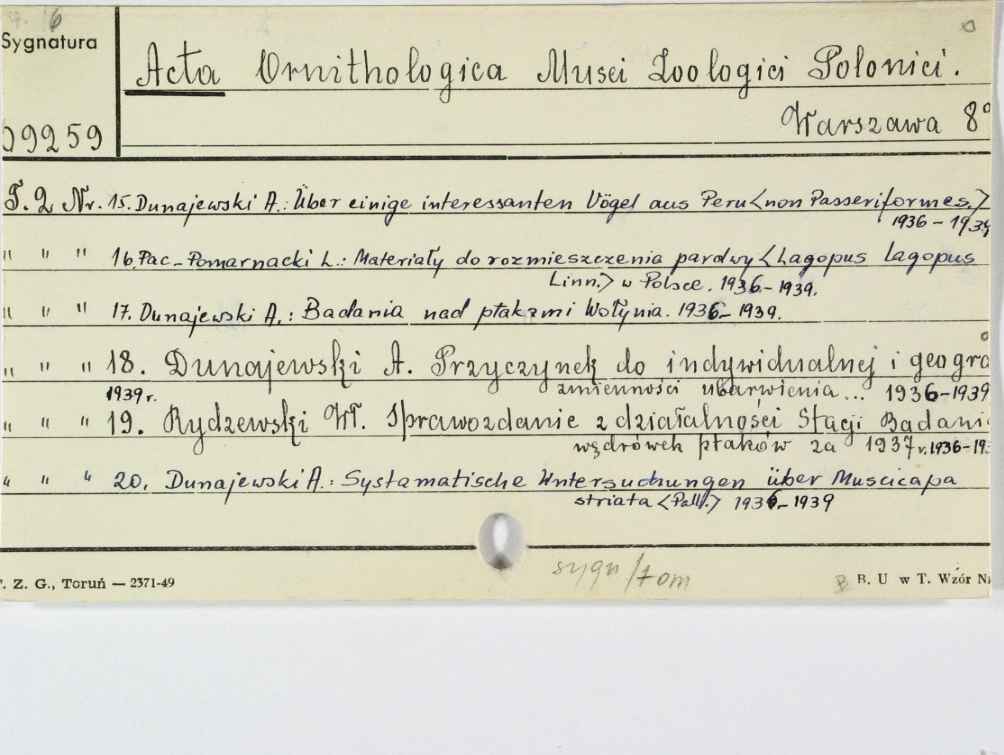 6
Sygnatura
Acta Ornithologica Musei Zoologici Polonici.
Warszawa 8°
09259
T. 2 Nr. 15. Dunajewski A.: Über einige interessanten Vögel aus Peru <non Passeriformes.>
1936-1939
" " " 16. Pac-Pomarnacki L.: Materiały do rozmieszczenia pardwy <Lagopus lagopus
Linn.> w Polsce. 1936-1939.
" " " 17. Dunajewski A.: Badania nad ptakami Wołynia. 1936-1939.
" " " 18. Dunajewski A. Przyczynek do indywidualnej i geogra
1939 r. zmienności ubarwienia... 1936-1939
" " " 19. Rydzewski Wł. Sprawozdanie z działalności Stacji Badani
wędrówek ptaków za 1937 r. 1936-193
" " " 20. Dunajewski A.: Systamatische Untersuchungen über Muscicapa
striata <Pall.> 1936-1939
sygn/tom
. Z. G., Toruń — 2371-49
B. U w T. Wzór N